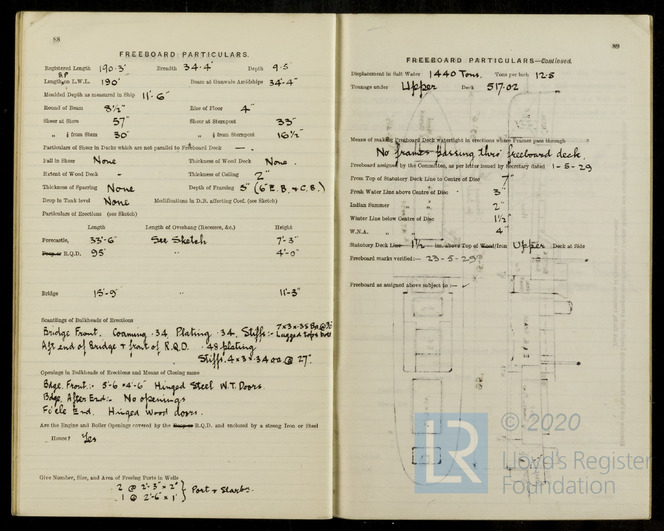 88
FREEBOARD PARTICULARS.
Registered Length 190·3' Breadth 34·4' Depth 9·5'
B.P.
Length on L.W.L. 190' Beam at Gunwale Amidships 34'-4"
Moulded Depth as measured in Ship 11'-6"
Round of Beam 8½" Rise of Floor 4"
Sheer at Stem 57" Sheer at Sternpost 33"
„ ⅛ from Stem 30" „ ⅛ from Sternpost 16½"
Particulars of Sheer in Decks which are not parallel to Freeboard Deck — .
Fall in Sheer None Thickness of Wood Deck None.
Extent of Wood Deck - Thickness of Ceiling 2"
Thickness of Sparring None Depth of Framing 5" (6" E.B. & C.B.)
Drop in Tank level None Modifications in D.B. affecting Coef. (see Sketch)
Particulars of Erections (see Sketch)
Length Length of Overhang (Recesses, &c.) Height
Forecastle, 33'-6" See Sketch 7'-3"
R.Q.D. 95' „ 4'-0"
Bridge 15'-9" „ 11'-3"
Scantlings of Bulkheads of Erections
Bridge Front. Coaming ·34 Plating ·34. Stiffs:- 7×3×·35 BA @
Lugged tops
Aft end of Bridge & front of R.Q.D. ·48 plating
Stiffs. 4×3×·34 @ 27"
Openings in Bulkheads of Erections and Means of Closing same
Bdge. Front.:- 5'-6"×4'-6" Hinged Steel W.T. Doors.
Bdge. After End:- No openings
Fc'cle End. Hinged Wood doors.
Are the Engine and Boiler Openings covered by the R.Q.D. and enclosed by a strong Iron or Steel
House? Yes
Give Number, Size, and Area of Freeing Ports in Wells
2 @ 2'-3"×2' } Port & Starbd.
1 @ 2'-6"×1' }
89
FREEBOARD PARTICULARS—Continued.
Displacement in Salt Water 1440 Tons. Tons per Inch 12·5
Tonnage under Upper Deck 517·02
Means of making Freeboard Deck watertight in erections where Frames pass through
No frames passing thro' freeboard deck.
Freeboard assigned by the Committee, as per letter issued by Secretary dated 1-5-29
From Top of Statutory Deck Line to Centre of Disc 7"
Fresh Water Line above Centre of Disc 3"
Indian Summer „ „ 2"
Winter Line below Centre of Disc 1½"
W.N.A. „ „ 4"
Statutory Deck Line 1½ ins. above Top of Wood/Iron Upper Deck at Side
Freeboard marks verified:— 23-5-29
Freeboard as assigned above subject to :— ✓
© 2020
LR
Lloyd's Register
Foundation